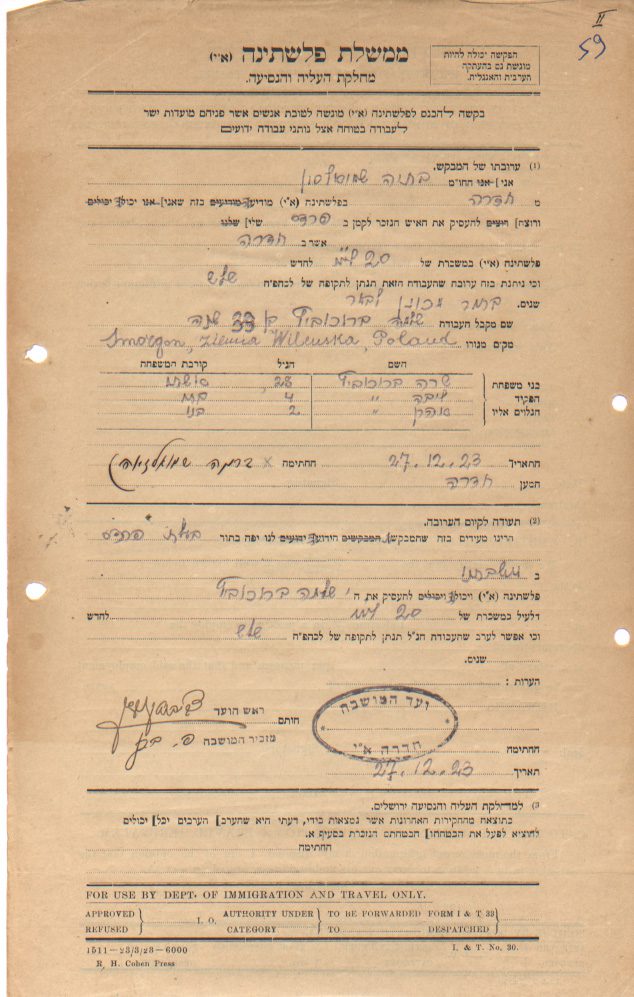 II
59
הפקישה יכולה להיות
מוגשת גם בהעתקה
הערבית והאנגלית.
ממשלת פלשתינה (א״י)
מחלקת העליה והנסיעה.
בקשה להכנס לפלשתינה (א״י) מוגשה לטובת אנשים אשר פניהם מועדות ישר
לעבודה בטוחה אצל נותני עבודה ידועים
(1) ערובתו של המבקש.
אני] אנו החו״מ
מ חדרה בפלשתינה (א״י) מודיע] מודיעים בזה שאני] אנו יכול] יכולים
ורוצה] רוצים להעסיק את האיש הנזכר לקמן ב פרדס שלי] שלנו
אשר ב חדרה
פלשתינה (א״י) במשכרת של 20 לחדש
וכי ניתנת בזה ערובה שהעבודה הזאת תנתן לתקופה של לכהפ״ח שלש
שנים.
שם מקבל העבודה שלמה ברוכוביץ בן 33 שנה
מקום מגורו Smorgon, Ziemia Wilenska, Poland
השם הגיל קורבת המשפחה
בני משפחת שרה ברוכוביץ 28
הפקיד ליבה ״ 4 בת
הנלוים אליו אהרן ״ 2 בנו
התאריך 27.12.23 החתימה x
המען חדרה
(2) תעודה לקיום הערובה.
הרינו מעידים בזה שהמבקש] המבקשים הידוע] ידועים לנו יפה בתור פרדס
ב
פלשתינה (א״י) ויכול] ויכולים להעסיק את ה׳ שלמה ברוכוביץ
דלעיל במשכרת של 20 לחדש
וכי אפשר לערב שהעבודה הנ״ל תנתן לתקופה של לכהפ״ח שלש
שנים.
הערות :
ראש הועד
חותם
מזכיר המושבה
ועד המושבה
חדרה א״י
החתימה
תאריך 27.12.23
(3 למחלקת העליה והנסיעה ירושלים.
כתוצאה מהחקירות האחרונות אשר נמצאות בידי, דעתי היא שהערב] הערבים יכל] יכולים
להוציא לפעל את הבטחתו] הבטחתם הנזכרת בסעיף א.
החתימה
FOR USE BY DEPT. OF IMMIGRATION AND TRAVEL ONLY.
APPROVED } I. O. AUTHORITY UNDER } TO BE FORWARDED FORM I & T 33 }
REFUSED CATEGORY TO DESPATCHED
1511—23/3/23—6000 I. & T. No. 30.
R. H. Cohen Press